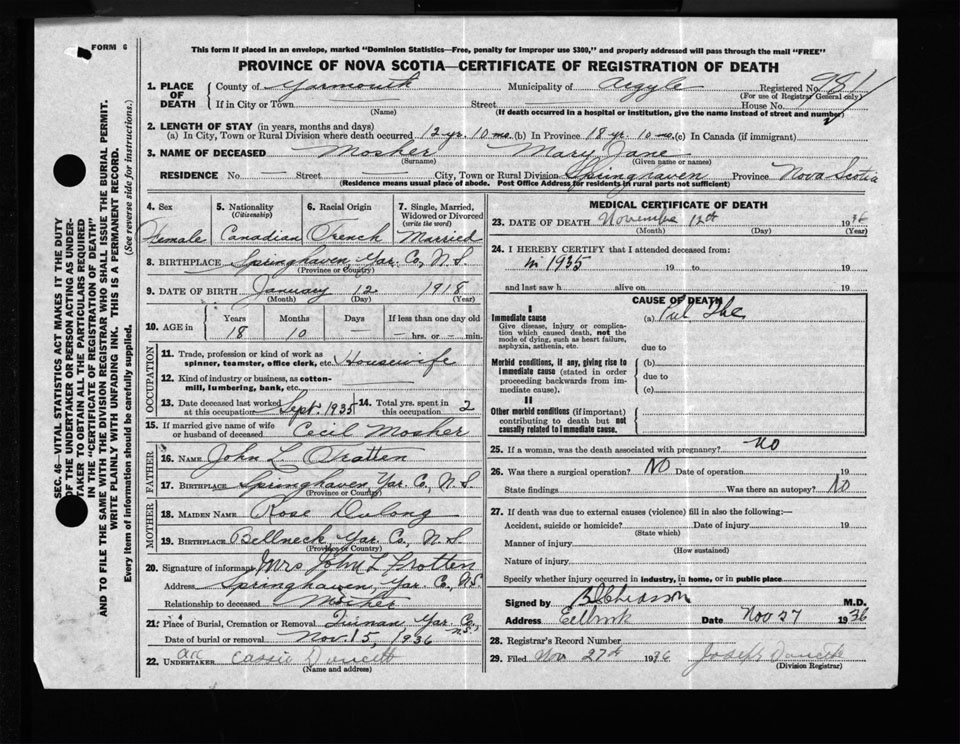 FORM 6
This form if placed in an envelope, marked "Dominion Statistics—Free, penalty for improper use $300," and properly addressed will pass through the mail "FREE"
PROVINCE OF NOVA SCOTIA—CERTIFICATE OF REGISTRATION OF DEATH
SEC. 46—VITAL STATISTICS ACT MAKES IT THE DUTY
OF THE UNDERTAKER OR PERSON ACTING AS UNDER-
TAKER TO OBTAIN ALL THE PARTICULARS REQUIRED
IN THE "CERTIFICATE OF REGISTRATION OF DEATH"
AND TO FILE THE SAME WITH THE DIVISION REGISTRAR WHO SHALL ISSUE THE BURIAL PERMIT.
WRITE PLAINLY WITH UNFADING INK. THIS IS A PERMANENT RECORD.
Every item of Information should be carefully supplied. (See reverse side for instructions.)
1. PLACE OF DEATH County of Yarmouth Municipality of Argyle Registered No. 981
(For use of Registrar General only)
If in City or Town Street House No.
(Name) (If death occurred in a hospital or institution, give the name instead of street and number)
2. LENGTH OF STAY (in years, months and days)
(a) In City, Town or Rural Division where death occurred 12 yr. 10 mo. (b) In Province 18 yr. 10 mo. (c) In Canada (if immigrant)
3. NAME OF DECEASED Mosher Mary Jane
(Surname) (Given name or names)
RESIDENCE No. — Street — City, Town or Rural Division Springhaven Province Nova Scotia
(Residence means usual place of abode. Post Office Address for residents in rural parts not sufficient)
4. Sex Female
5. Nationality (Citizenship) Canadian
6. Racial Origin French
7. Single, Married, Widowed or Divorced (write the word) Married
8. BIRTHPLACE Springhaven Yar. Co., N.S.
(Province or Country)
9. DATE OF BIRTH January 12 1918
(Month) (Day) (Year)
10. AGE in Years Months Days If less than one day old
18 10 — — hrs. or — min.
OCCUPATION
11. Trade, profession or kind of work as spinner, teamster, office clerk, etc. Housewife
12. Kind of industry or business, as cotton-mill, lumbering, bank, etc.
13. Date deceased last worked at this occupation Sept. 1935 14. Total yrs. spent in this occupation 2
15. If married give name of wife or husband of deceased Cecil Mosher
FATHER
16. NAME John L. Frotten
17. BIRTHPLACE Springhaven, Yar. Co., N.S.
(Province or Country)
MOTHER
18. MAIDEN NAME Rose Dulong
19. BIRTHPLACE Bellneck Yar. Co., N.S.
(Province or Country)
20. Signature of informant Mrs John L Frotten
Address Springhaven, Yar. Co., N.S.
Relationship to deceased Mother
21. Place of Burial, Cremation or Removal Quinan Yar. Co., N.S.
Date of burial or removal Nov. 15, 1936
22. UNDERTAKER Cassie
(Name and address)
MEDICAL CERTIFICATE OF DEATH
23. DATE OF DEATH November 12th 1936
(Month) (Day) (Year)
24. I HEREBY CERTIFY that I attended deceased from:
in 1935 19 to 19
and last saw h alive on 19
CAUSE OF DEATH
I
Immediate cause (a) Pul
Give disease, injury or complica-
tion which caused death, not the
mode of dying, such as heart failure,
asphyxia, asthenia, etc. due to
Morbid conditions, if any, giving rise to (b)
immediate cause (stated in order due to
proceeding backwards from im-
mediate cause). (c)
II
Other morbid conditions (if important)
contributing to death but not
causally related to immediate cause.
25. If a woman, was the death associated with pregnancy? No
26. Was there a surgical operation? No Date of operation 19
State findings Was there an autopsy? No
27. If death was due to external causes (violence) fill in also the following:—
Accident, suicide or homicide? Date of injury 19
(State which)
Manner of injury
(How sustained)
Nature of injury
Specify whether injury occurred in industry, in home, or in public place
Signed by M.D.
Address Eelbrook Date Nov 27 1936
28. Registrar's Record Number
29. Filed Nov 27th 1936 Joseph
(Division Registrar)